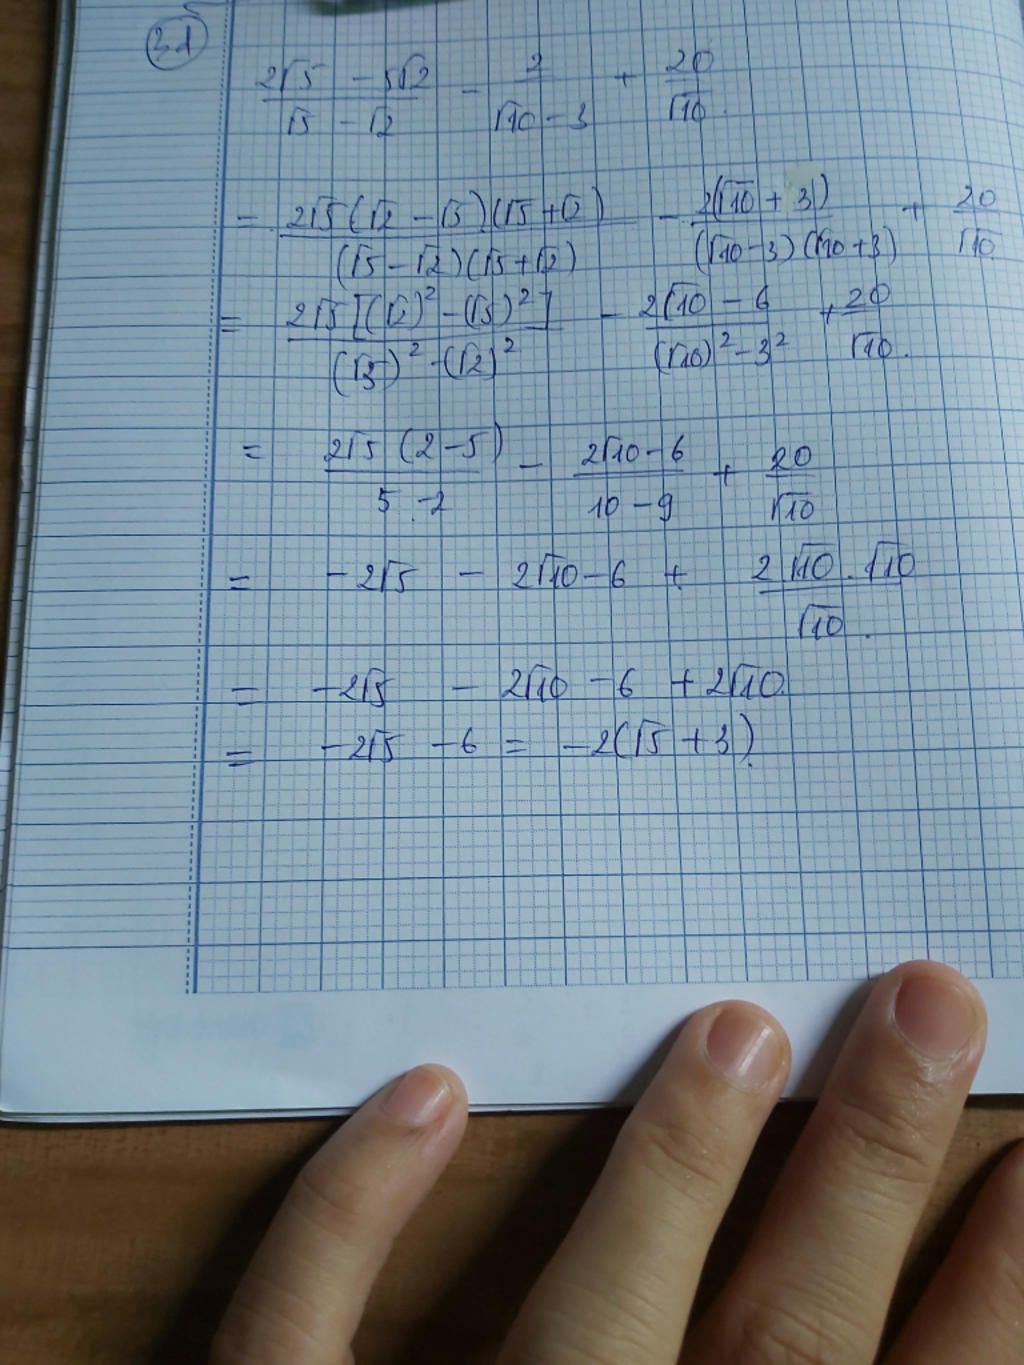 3.1
\frac{2√5 - 5√2}{√5 - √2} - \frac{2}{√10 - 3} + \frac{20}{√10}.
= \frac{2√5(√2 - √5)(√5 + √2)}{(√5 - √2)(√5 + √2)} - \frac{2(√10 + 3)}{(√10 - 3)(√10 + 3)} + \frac{20}{√10}
= \frac{2√5[(√2)² - (√5)²]}{(√5)² - (√2)²} - \frac{2√10 - 6}{(√10)² - 3²} + \frac{20}{√10}.
= \frac{2√5(2 - 5)}{5 - 2} - \frac{2√10 - 6}{10 - 9} + \frac{20}{√10}
= -2√5 - 2√10 - 6 + \frac{2√10.√10}{√10}.
= -2√5 - 2√10 - 6 + 2√10.
= -2√5 - 6 = -2(√5 + 3).